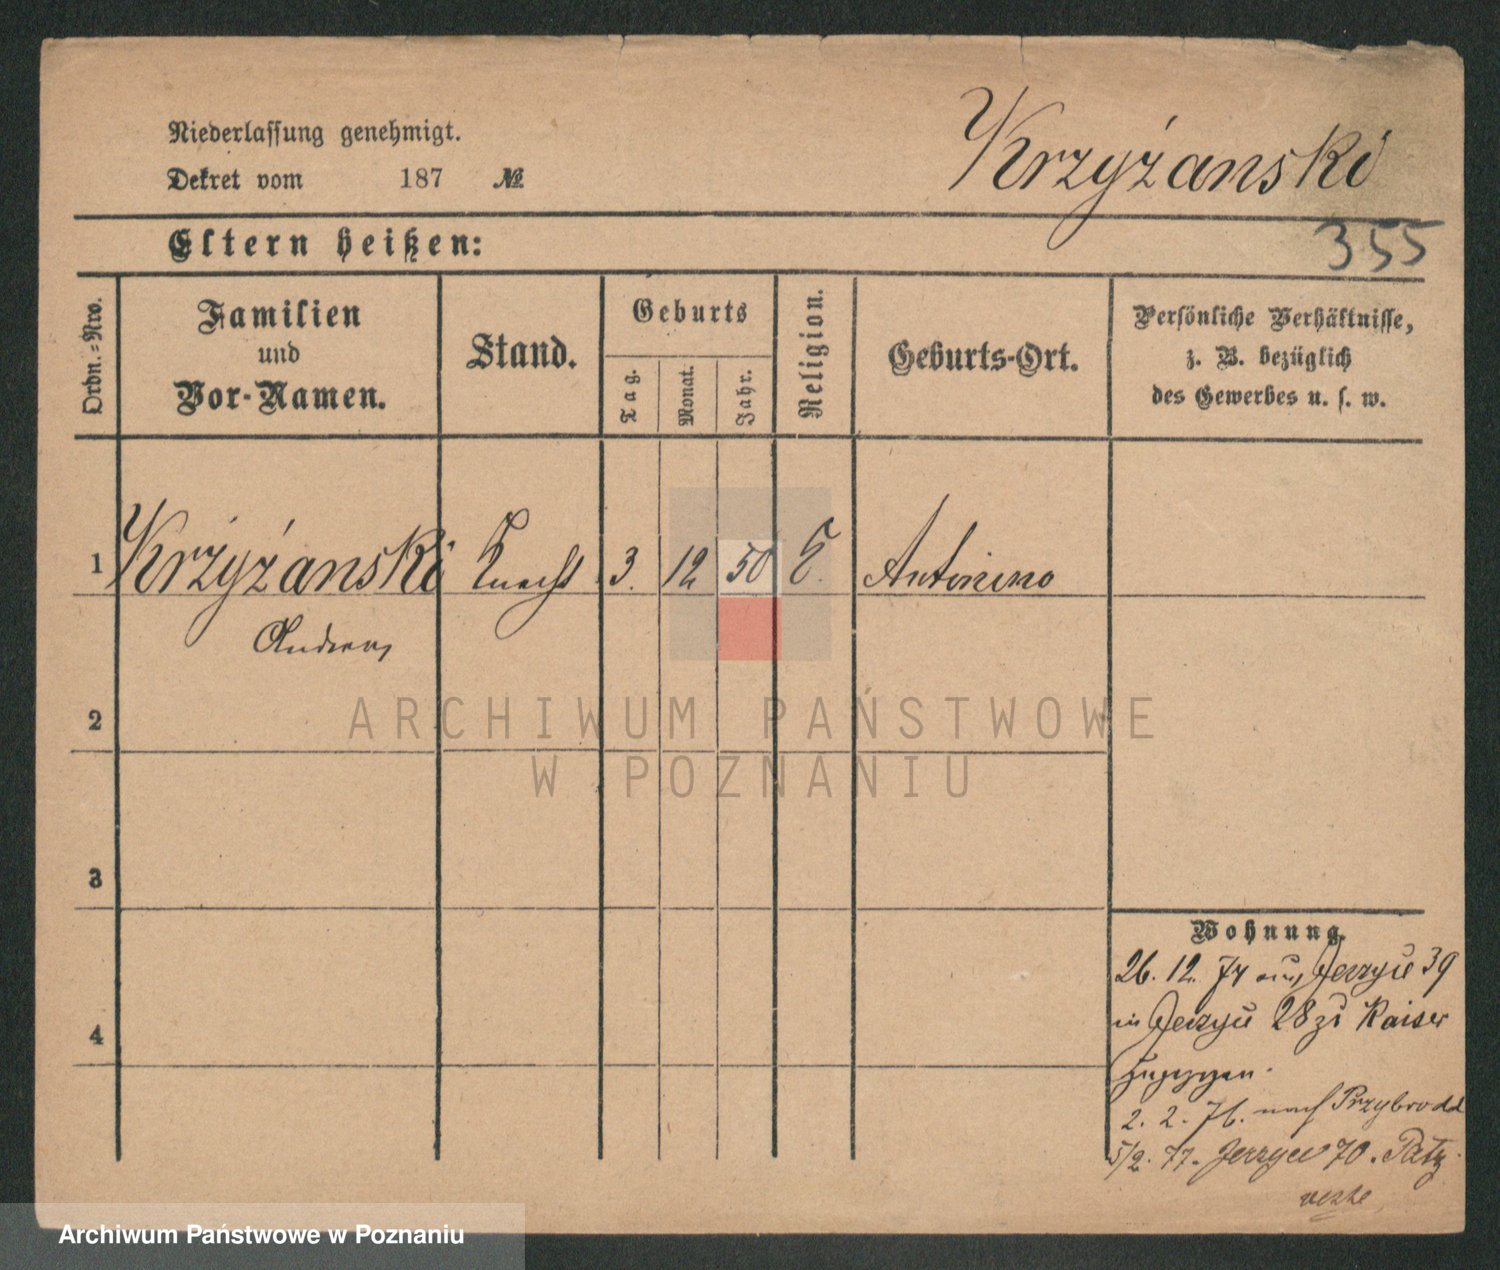 Niederlassung genehmigt.
Dekret vom 187 №
Krzyżanski
355
Eltern heißen:
Ordn.-Nro.
Familien
und
Vor-Namen.
Stand.
Geburts
Tag.
Monat.
Jahr.
Religion.
Geburts-Ort.
Persönliche Verhältnisse,
z. B. bezüglich
des Gewerbes u. s. w.
1 Krzyżanski Knecht 3. 12 50 Antonino
Andreas
2
3
4
Wohnung.
26. 12. 74 aus Jerzyce 39
in Jerzyce 28 zu Kaiser
zugezogen.
2. 2. 76. nach Przybrodd
5/2. 77. Jerzyce 70.
ARCHIWUM PAŃSTWOWE
W POZNANIU
Archiwum Państwowe w Poznaniu